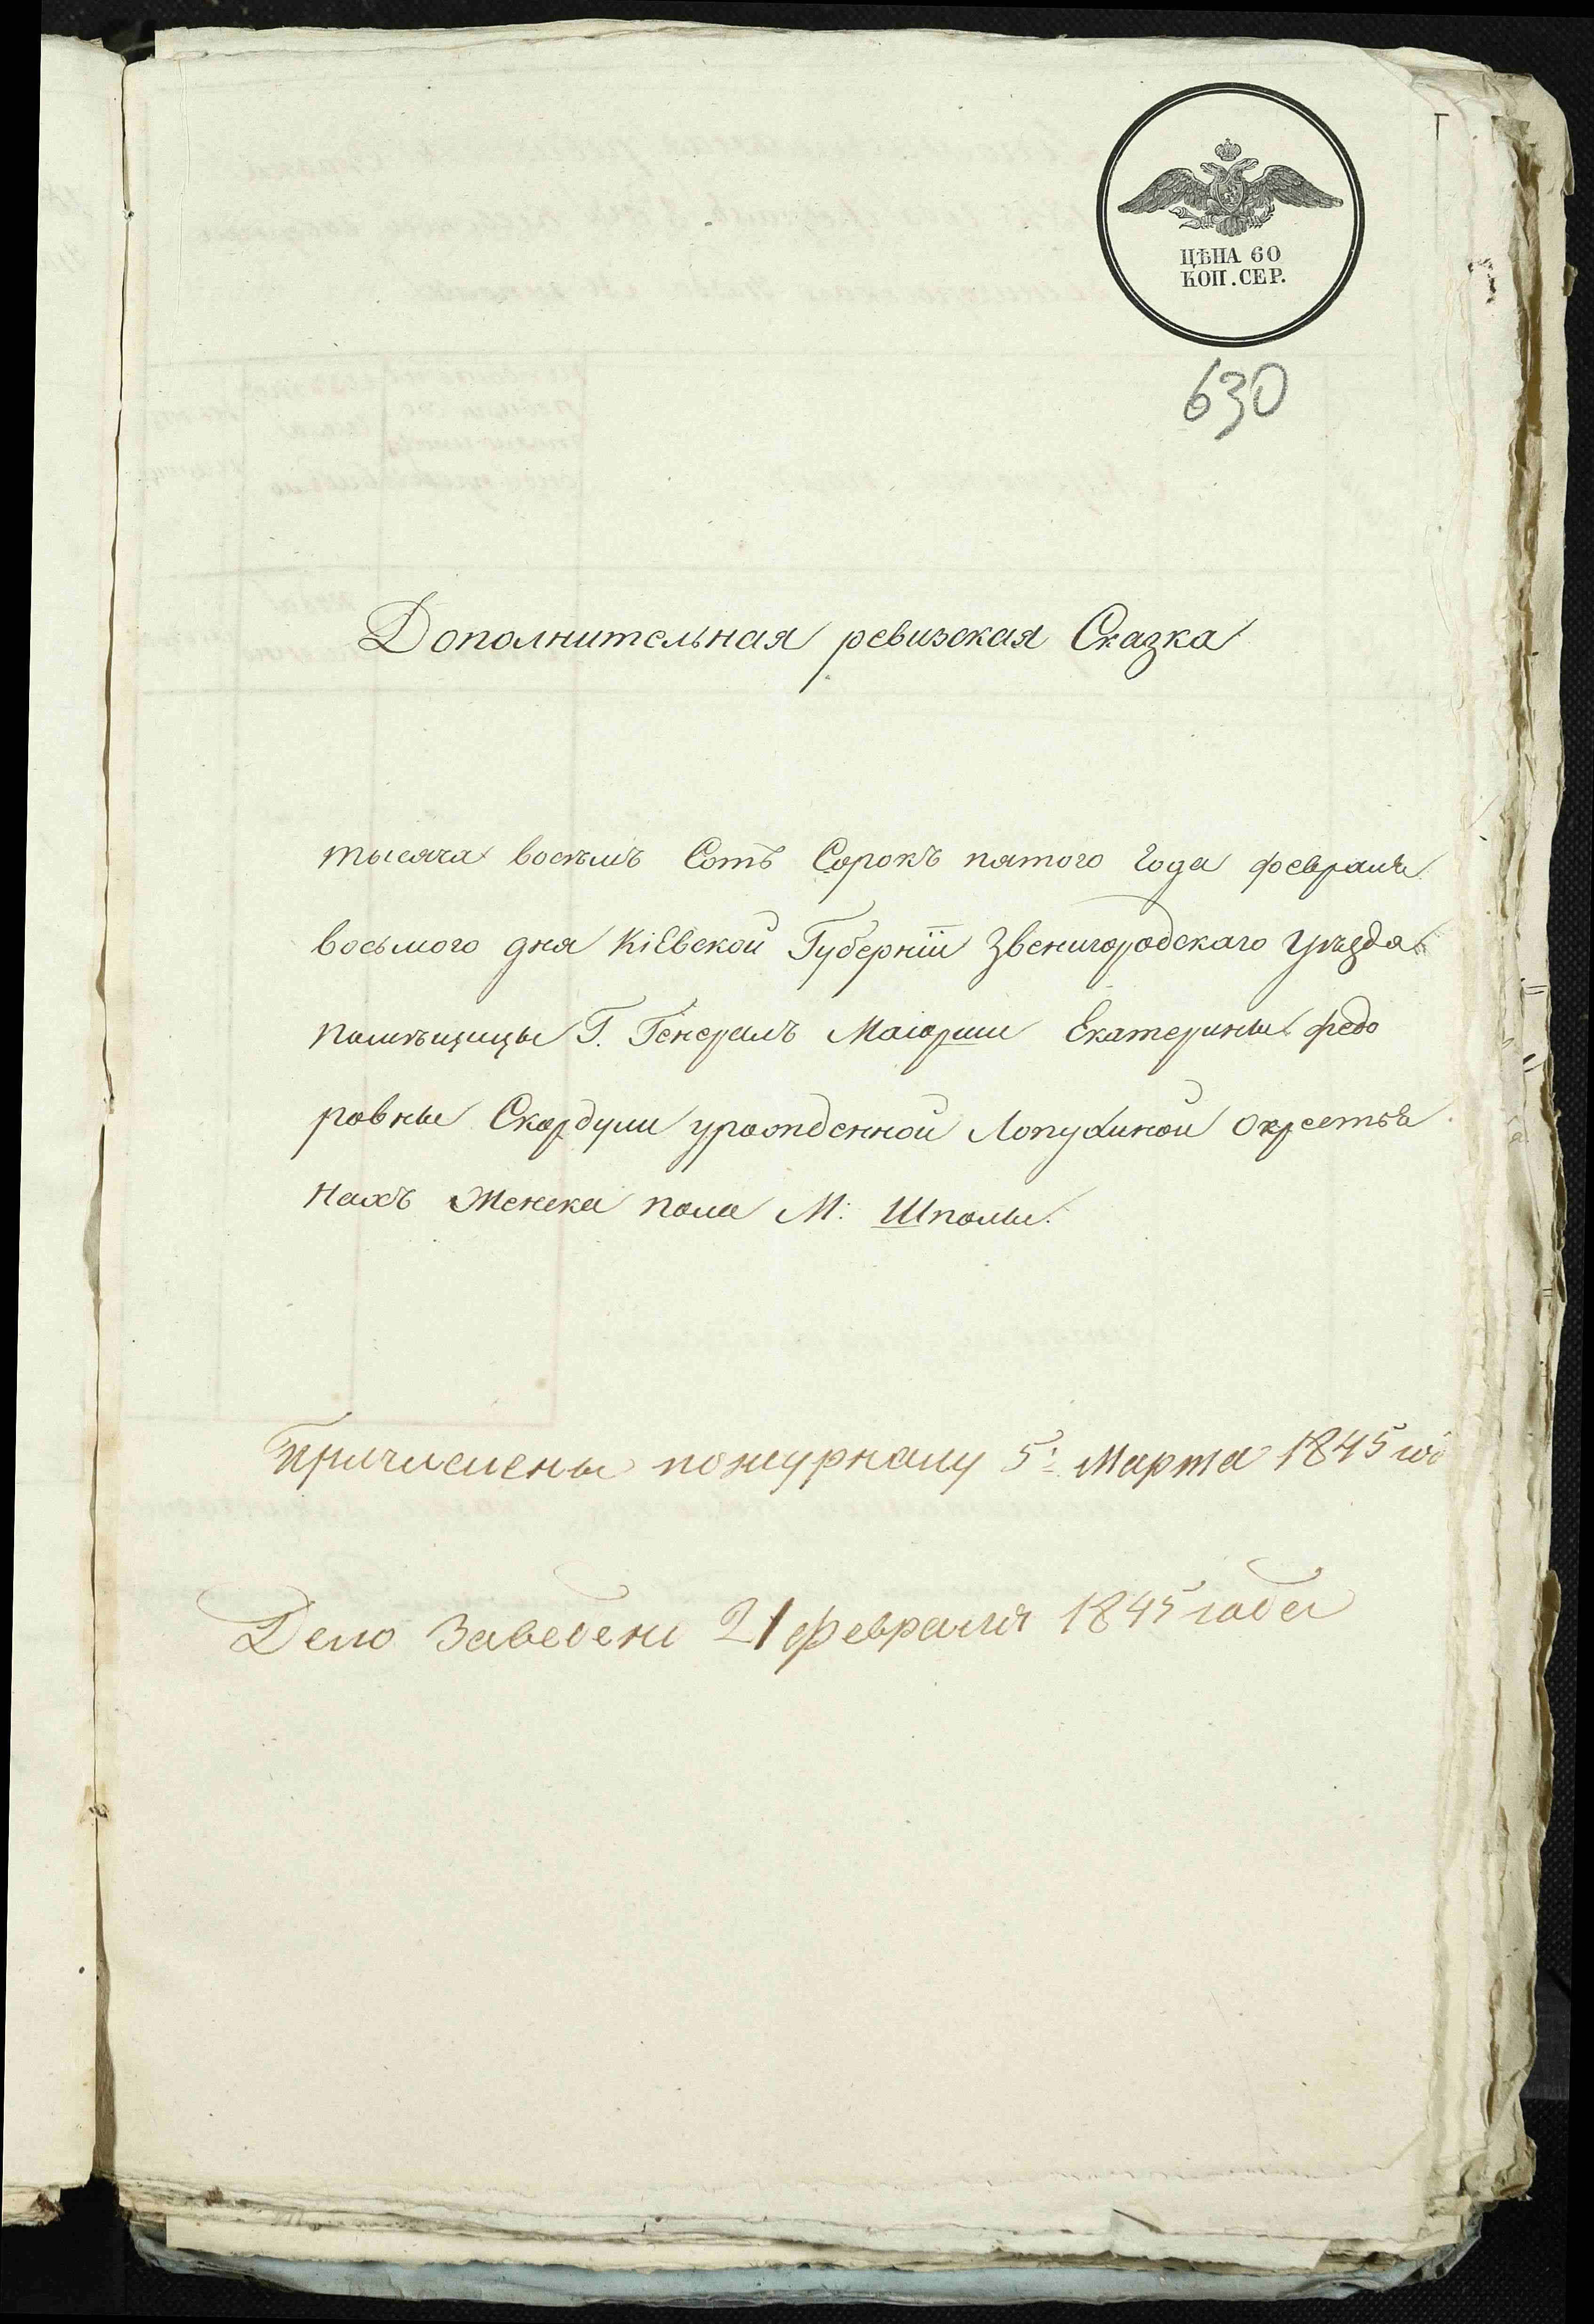 ЦѢНА 60
КОП. СЕР.
630
Дополнительная ревизская Сказка
тысяча восемъ Сотъ Сорокъ пятого года февраля
восьмого дня Кіевской Губерніи Звенигородскаго уѣзда
помѣщицы Г. Генералъ Маіорши Екатерины Федо
ровны Скордули урожденной Лопухиной о крестья
нахъ женска пола М: Шполы.
Причислены по журналу 5: Марта 1845 го
Дело заведено 21 февраля 1845 года